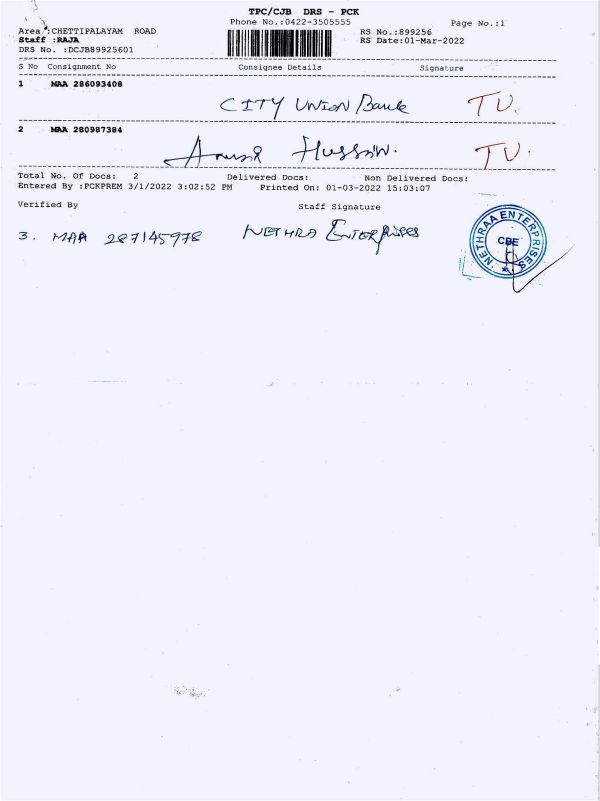 TPC/CJB DRS - PCK
Phone No.:0422-3505555
Page No.:1
Area :CHETTIPALAYAM ROAD
RS No.:899256
Staff :RAJA
RS Date:01-Mar-2022
DRS No. :DCJB89925601
S No Consignment No Consignee Details Signature
1 MAA 286093408
CITY UNION Bank TV.
2 MAA 280987384
Hussain. TV.
Total No. Of Docs: 2 Delivered Docs: Non Delivered Docs:
Entered By :PCKPREM 3/1/2022 3:02:52 PM Printed On: 01-03-2022 15:03:07
Verified By Staff Signature
3. MAA 287145978 NETHRA ENTERPRISES
NETHRAA ENTERPRISES
CBE